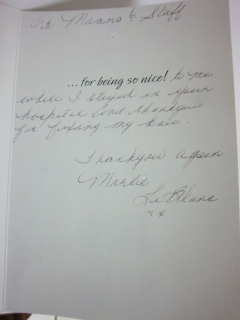 Dr Manno & Staff
...for being so nice! to me
while I stayed in your
hospital and thankyou
for fixing my knee.
Thankyou again
Marlie
LeBlanc
xx